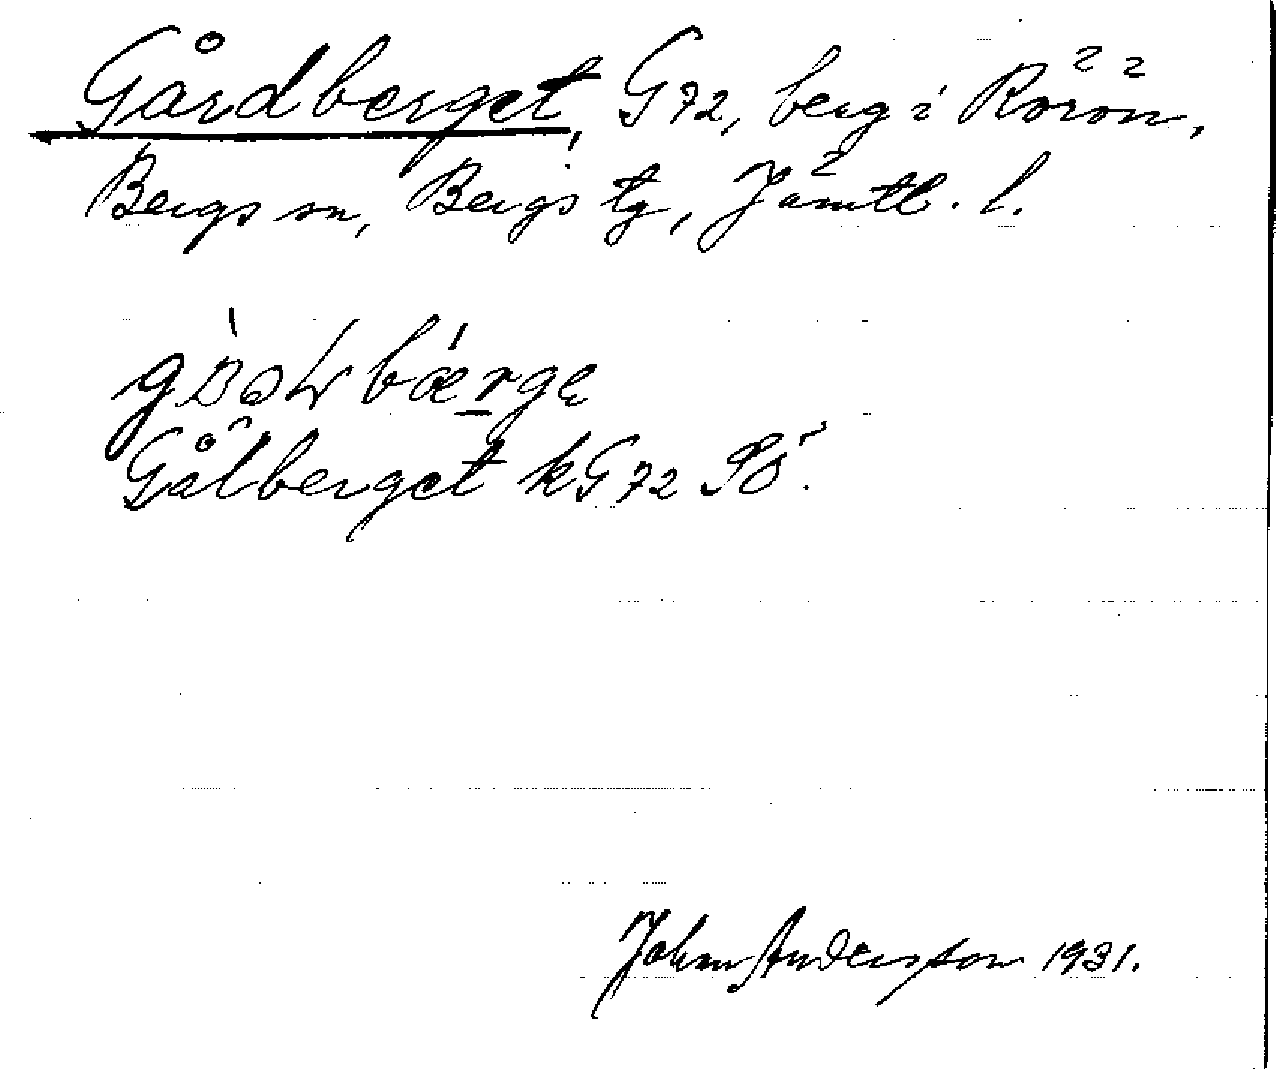 Gårdberget, G72, berg i Rörön,
Bergs sn, Bergs tg, Jämtl. l.
Gålberget kG72 Sö.
John Andersson 1931.